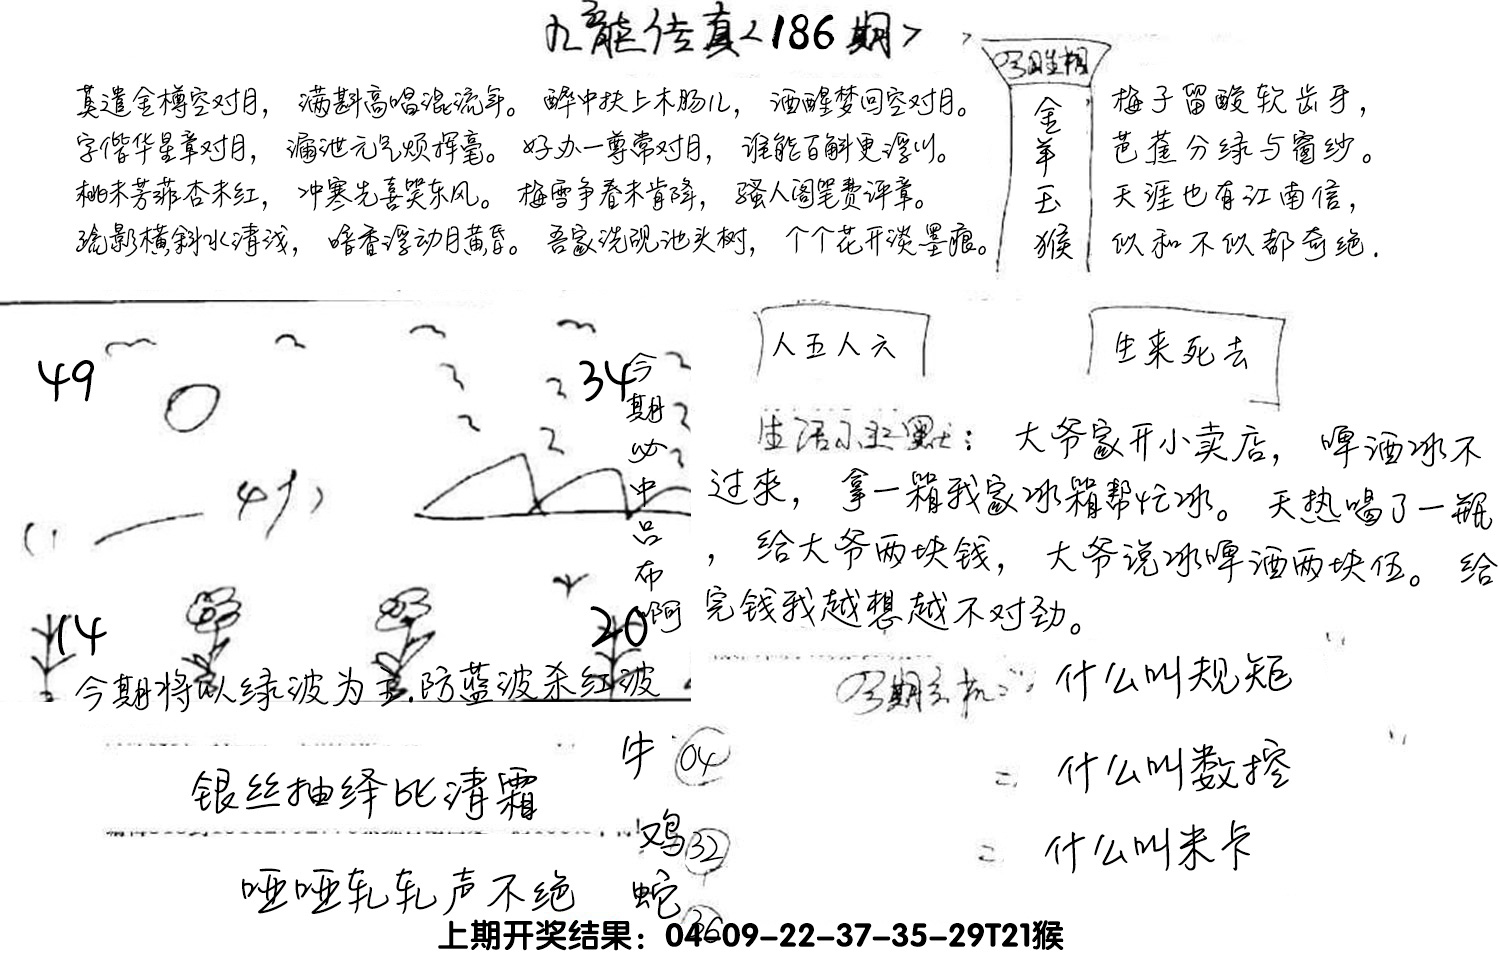 九龙传真<186期>
莫遣金樽空对月，满斟高唱混流年。醉中扶上木肠儿，酒醒梦回空对月。
字偕华星章对月，漏泄元气烦挥毫。好办一尊常对月，谁能百斛更浮川。
桃未芳菲杏未红，冲寒先喜笑东风。梅雪争春未肯降，骚人阁笔费评章。
疏影横斜水清浅，暗香浮动月黄昏。吾家洗砚池头树，个个花开淡墨痕。
金羊玉猴
梅子留酸软齿牙，
芭蕉分绿与窗纱。
天涯也有江南信，
似和不似都奇绝.
49
34
14
20
今期必中吕布啊
今期将以绿波为主.防蓝波杀红波
人五人六
生来死去
大爷家开小卖店，啤酒冰不
过来，拿一箱我家冰箱帮忙冰。天热喝了一瓶
，给大爷两块钱，大爷说冰啤酒两块伍。给
完钱我越想越不对劲。
什么叫规矩
什么叫数控
什么叫米卡
银丝抽绎比清霜
哑哑轧轧声不绝
牛 04
鸡 32
蛇 36
上期开奖结果：04-09-22-37-35-29T21猴